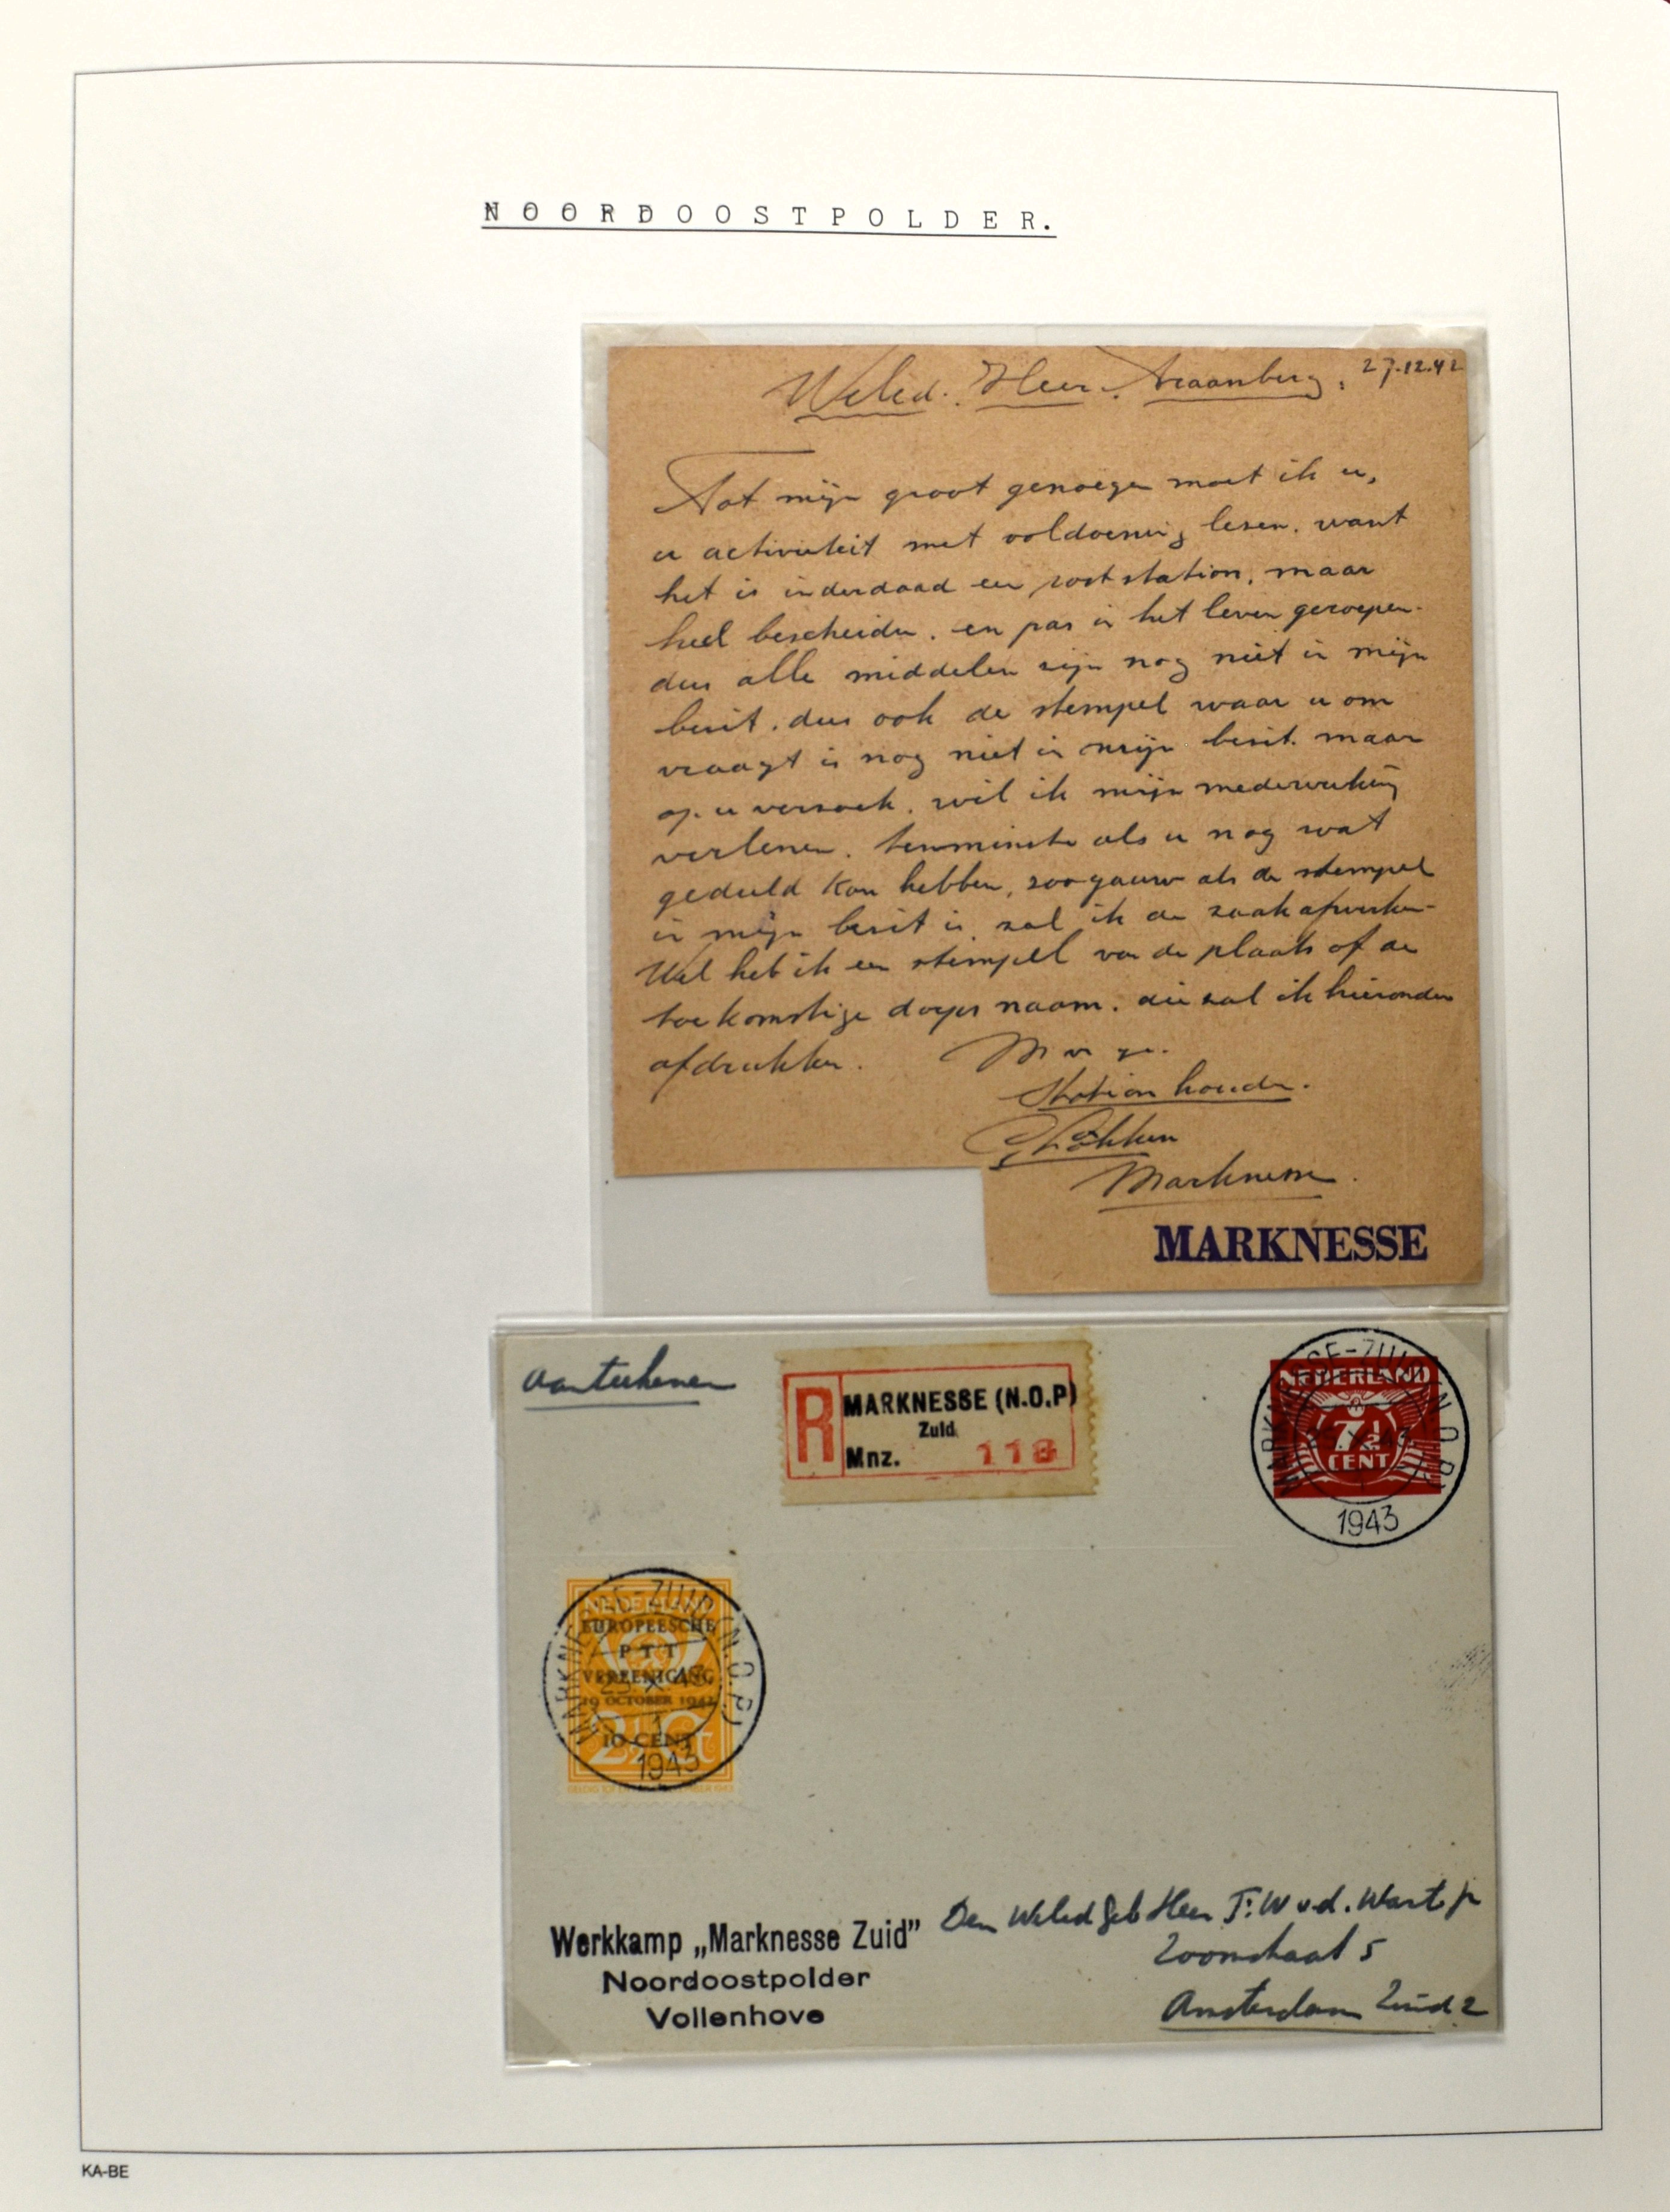 NOORDOOSTPOLDER.
27.12.42
Weled. Heer.
Tot mijn groot genoegen moet ik u,
u activiteit met voldoening lezen. want
het is inderdaad een poststation, maar
heel bescheiden. en pas in het leven geroepen.
dus alle middelen zijn nog niet in mijn
bezit. dus ook de stempel waar u om
vraagt is nog niet in mijn bezit. maar
op u verzoek. wil ik mijn medewerking
verlenen. tenminste als u nog wat
geduld kan hebben, zoo gauw als de stempel
in mijn bezit is, zal ik de zaak afwerken-
Wel heb ik een stempel van de plaats of de
toekomstige dorps naam. die zal ik hieronder
afdrukken.
Station houder.
Marknesse.
MARKNESSE
Aantekenen
R
MARKNESSE (N.O.P)
Zuid
Mnz. 118
MARKNESSE-ZUID (N.O.P.)
NEDERLAND
7½
CENT
1943
MARKNESSE-ZUID (N.O.P.)
NEDERLAND
EUROPEESCHE
P T T
VEREENIGING
19 OCTOBER 1942
10 CENT
2½ Ct
1943
Den Weled Geb Heer J. W v.d. Wart jr
Zoomstraat 5
Amsterdam Zuid 2
Werkkamp „Marknesse Zuid”
Noordoostpolder
Vollenhove
KA-BE